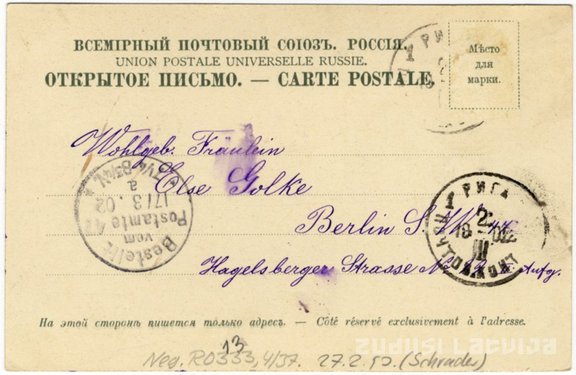 ВСЕМІРНЫЙ ПОЧТОВЫЙ СОЮЗЪ. РОССІЯ.
UNION POSTALE UNIVERSELLE RUSSIE.
ОТКРЫТОЕ ПИСЬМО. — CARTE POSTALE.
Мѣсто
для
марки.
1 РИГА
Wohlgeb. Fräulein
Else Golke
Berlin S. W.
Hagelsberger Strasse Aufg.
Bestellt
vom
Postamte 47
17/3.02
1 РИГА
На этой сторонѣ пишется только адресъ. — Côté réservé exclusivement à l'adresse.
13
Neg. R0333,4/37. 27.2.50. (Schrader)
zudusilatvija